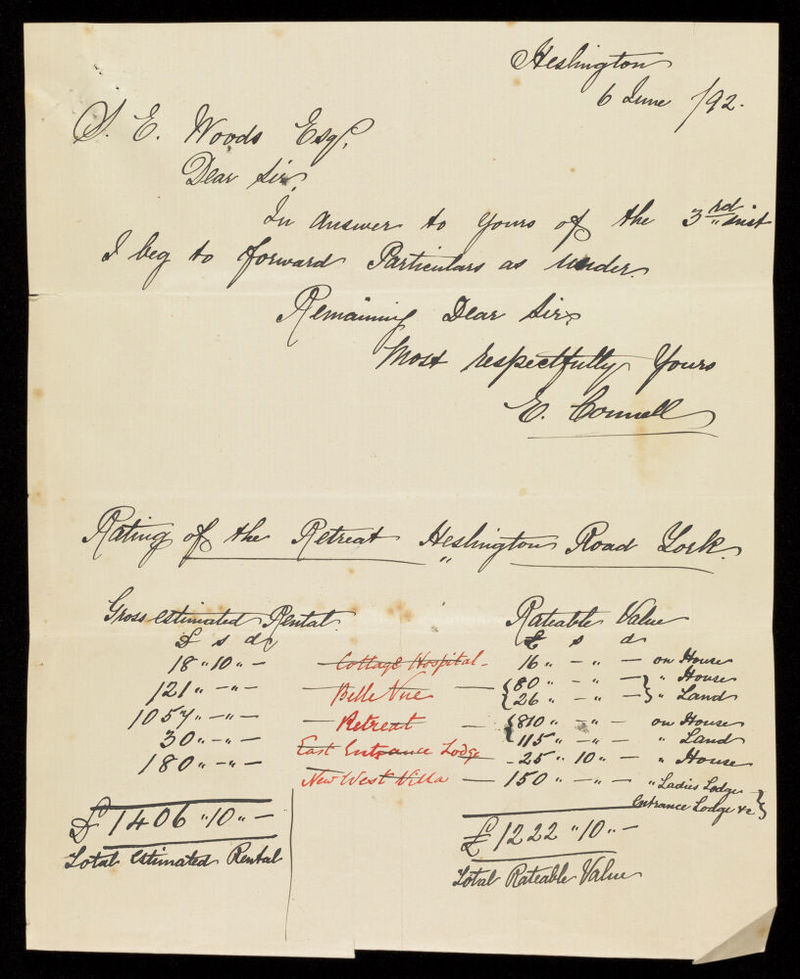 Heslington
6 June /92.
S. E. Woods Esqr.
Dear Sir,
In answer to yours of the 3rd inst
I beg to forward Particulars as under.
Remaining Dear Sir
Most respectfully Yours
E. Connell
Rating of the Retreat Heslington Road York.
Gross estimated Rental Rateable Value
£ s d £ s d
18 " 10 " — — Cottage Hospital — 16 " — " — on House
121 " — " — — Belle Vue — { 80 " — " — } " House
{ 26 " — " — } " Land
1057 " — " — — Retreat — { 810 " — " — on House
{ 115 " — " — " Land
30 " — " — East Entrance Lodge — 25 " 10 " — " House
180 " — " — New West Villa — 150 " — " — " Ladies Lodge }
Entrance Lodge &c }
£1406 " 10 " — £1222 " 10 " —
Total estimated Rental Total Rateable Value